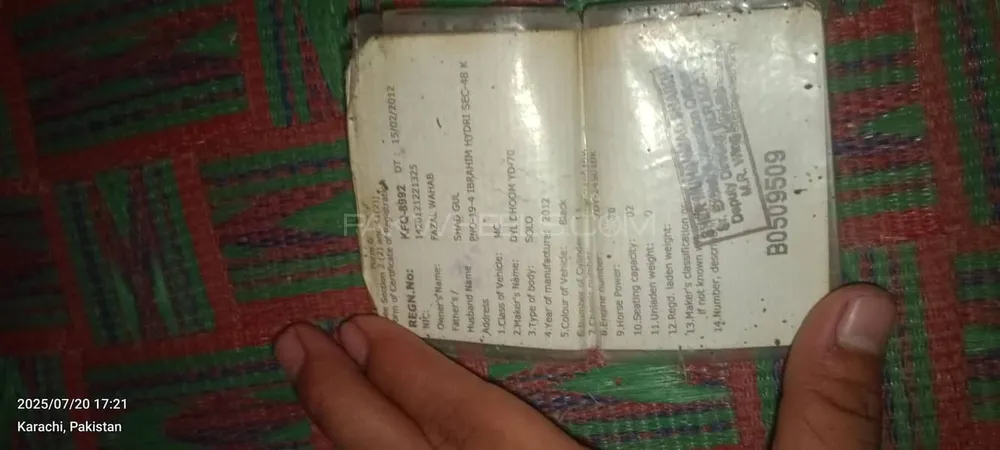 See Section 2 (2) and
Form of Certificate of Registration
REGN.No: KFO-8992 DT: 15/02/2012
NIC: 1420121221325
Owner's Name: FAZAL WAHAB
Father's / SHAD GUL
Husband Name
Address PNO-19-4 IBRAHIM HYDRI SEC-48 K
1.Class of Vehicle: MC
2.Maker's Name: DYL DHOOM YD-70
3.Type of body: SOLO
4.Year of manufacture: 2012
5.Colour of Vehicle: Black
6.Number of Cylinder
8.Engine number
9.Horse Power: 70
10.Seating capacity: 02
11.Unladen weight: 0
12.Regd. laden weight:
13.Maker's classification
if not known
14.Number, descri
M.R. Wing
B0509509
2025/07/20 17:21
Karachi, Pakistan